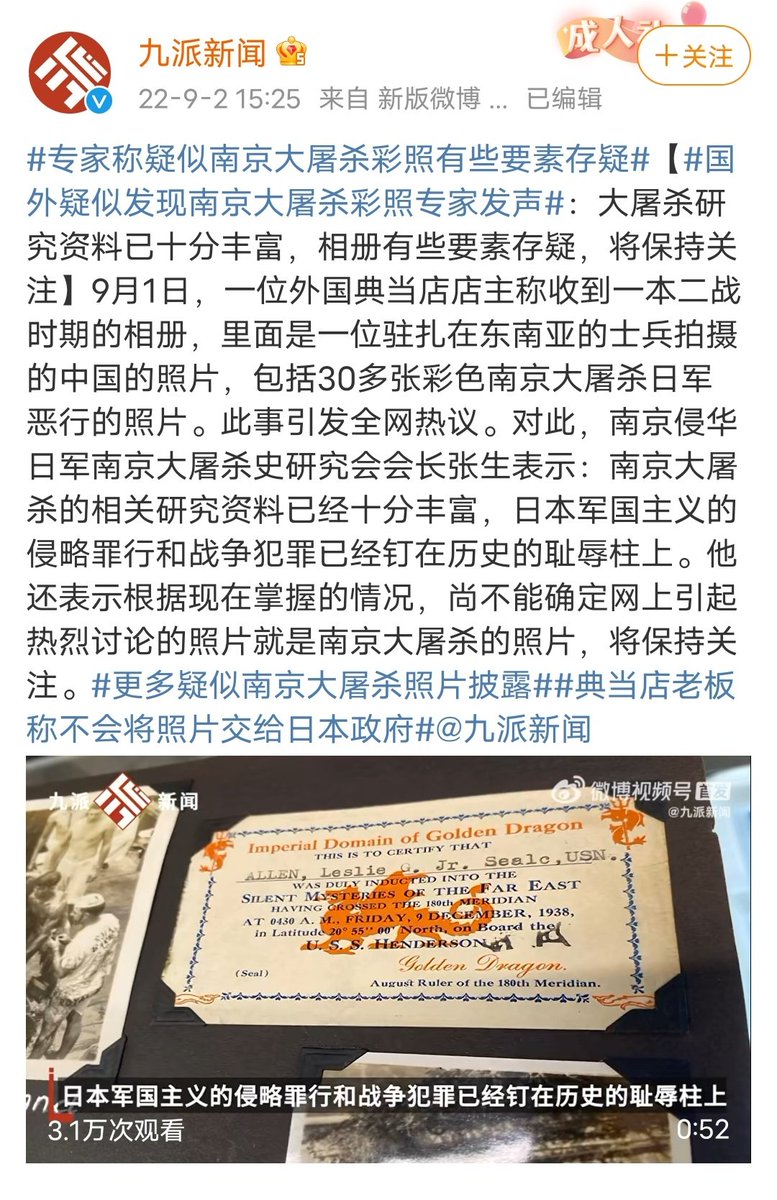 九派新闻
22-9-2 15:25 来自 新版微博 ... 已编辑
+关注
#专家称疑似南京大屠杀彩照有些要素存疑#【#国
外疑似发现南京大屠杀彩照专家发声#：大屠杀研
究资料已十分丰富，相册有些要素存疑，将保持关
注】9月1日，一位外国典当店店主称收到一本二战
时期的相册，里面是一位驻扎在东南亚的士兵拍摄
的中国的照片，包括30多张彩色南京大屠杀日军
恶行的照片。此事引发全网热议。对此，南京侵华
日军南京大屠杀史研究会会长张生表示：南京大屠
杀的相关研究资料已经十分丰富，日本军国主义的
侵略罪行和战争犯罪已经钉在历史的耻辱柱上。他
还表示根据现在掌握的情况，尚不能确定网上引起
热烈讨论的照片就是南京大屠杀的照片，将保持关
注。#更多疑似南京大屠杀照片披露##典当店老板
称不会将照片交给日本政府#@九派新闻
九派 新闻
微博视频号 首发
@九派新闻
Imperial Domain of Golden Dragon
THIS IS TO CERTIFY THAT
ALLEN, Leslie G. Jr. Sea1c, USN.
WAS DULY INDUCTED INTO THE
SILENT MYSTERIES OF THE FAR EAST
HAVING CROSSED THE 180th MERIDIAN
AT 0430 A. M., FRIDAY, 9 DECEMBER, 1938,
in Latitude 20° 55" 00' North, on Board the
U. S. S. HENDERSON
(Seal)
Golden Dragon.
August Ruler of the 180th Meridian.
日本军国主义的侵略罪行和战争犯罪已经钉在历史的耻辱柱上
3.1万次观看
0:52